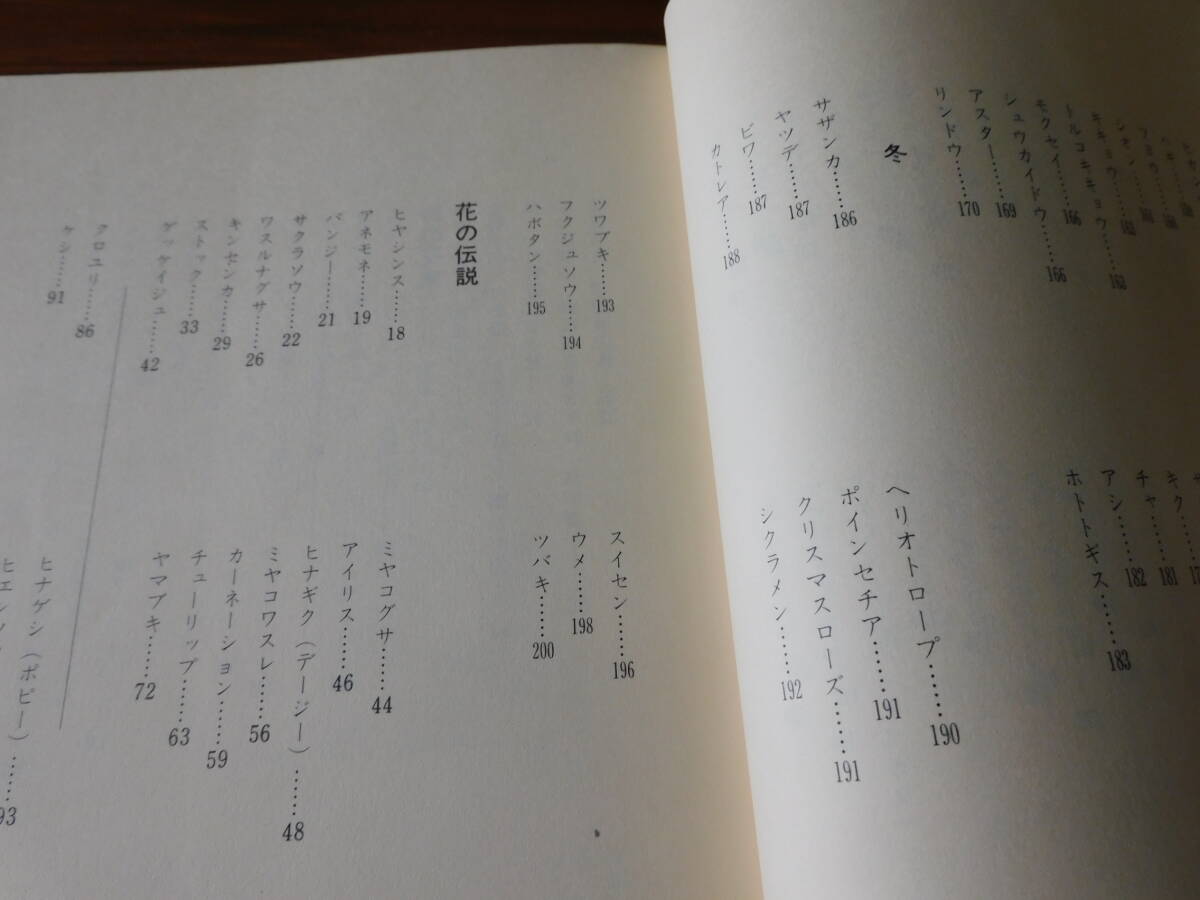 トルコキキョウ……163
モクセイ……166
シュウカイドウ……166
アスター……169
リンドウ……170
チャ……181
アシ……182
ホトトギス……183
冬
サザンカ……186
ヤツデ……187
ビワ……187
カトレア……188
ヘリオトロープ……190
ポインセチア……191
クリスマスローズ……191
シクラメン……192
ツワブキ……193
フクジュソウ……194
ハボタン……195
スイセン……196
ウメ……198
ツバキ……200
花の伝説
ヒヤシンス……18
アネモネ……19
パンジー……21
サクラソウ……22
ワスルナグサ……26
キンセンカ……29
ストック……33
ゲッケイジュ……42
ミヤコグサ……44
アイリス……46
ヒナギク（デージー）……48
ミヤコワスレ……56
カーネーション……59
チューリップ……63
ヤマブキ……72
クロユリ……86
ケシ……91
ヒナゲシ（ポピー）……93